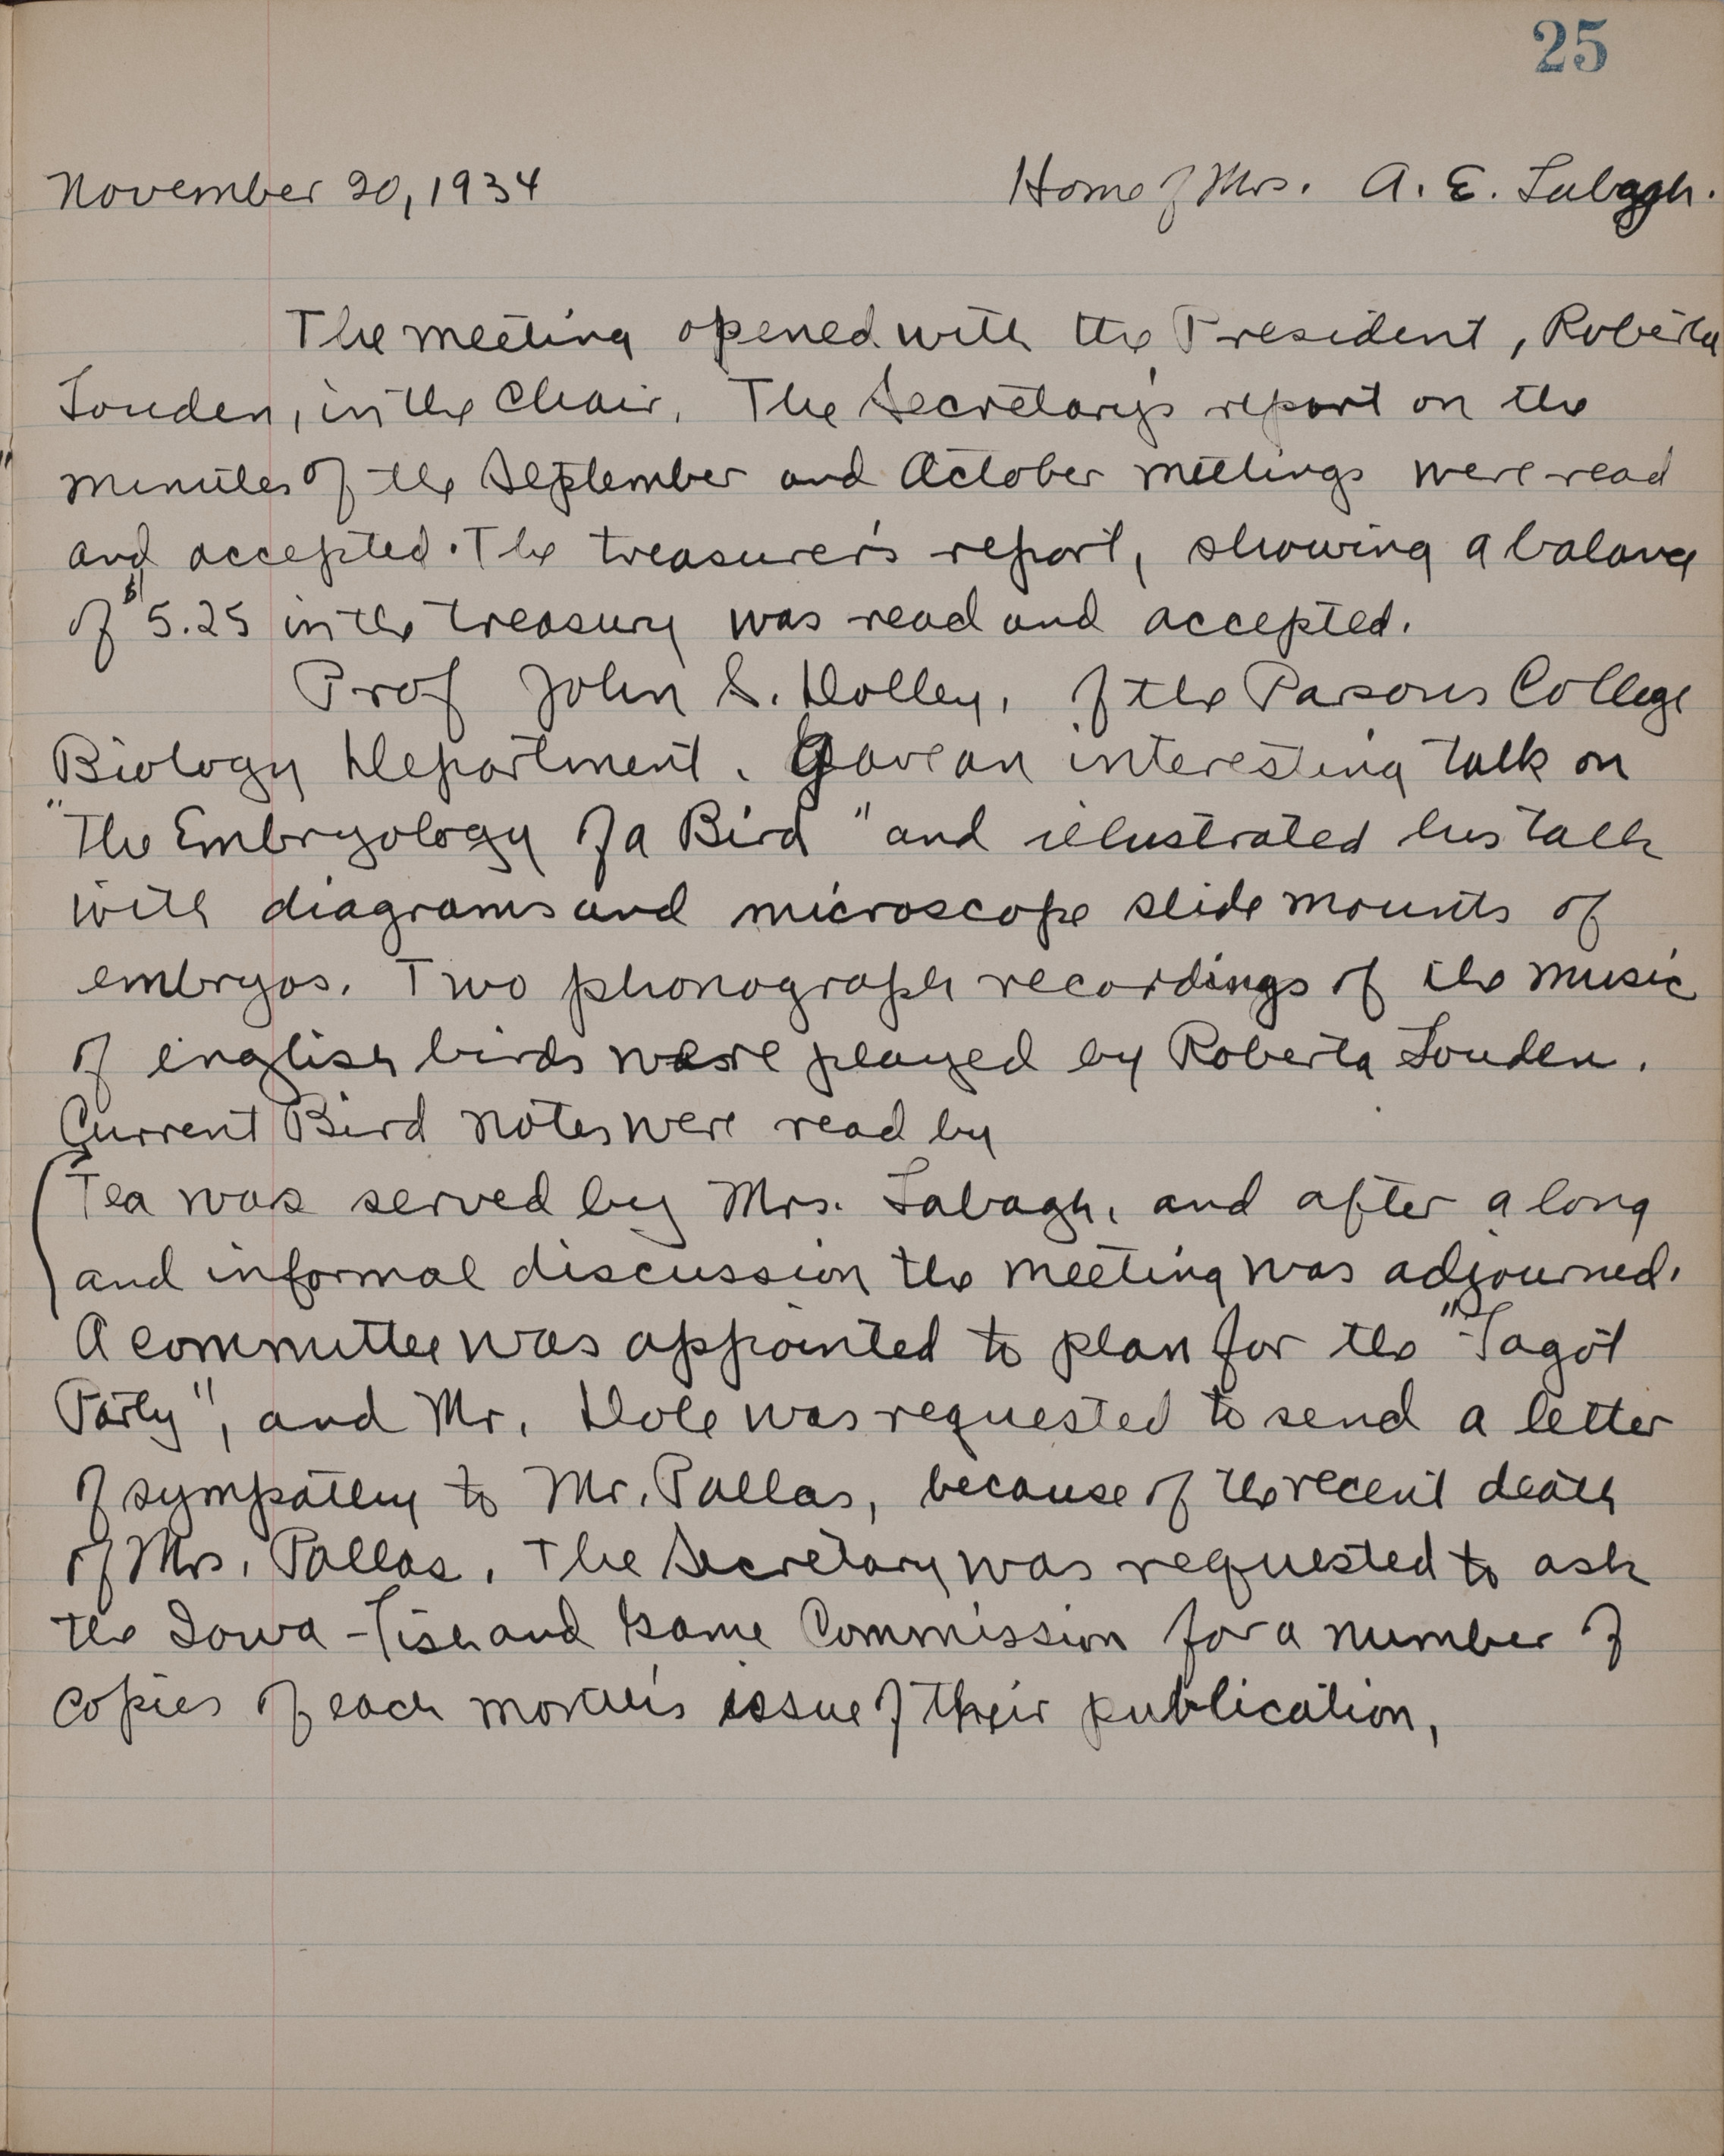 25
November 20, 1934 Home of Mrs. A. E. Labagh.
The meeting opened with the President, Roberta
Louden, in the Chair. The Secretary's report on the
minutes of the September and October meetings were read
and accepted. The treasurer's report, showing a balance
of $5.25 in the treasury was read and accepted.
Prof John S. Dolley, of the Parsons College
Biology Department. Gave an interesting talk on
"The Embryology of a Bird" and illustrated his talk
with diagrams and microscope slide mounts of
embryos. Two phonograph recordings of the music
of english birds were played by Roberta Louden.
Current Bird notes were read by
(Tea was served by Mrs. Labagh, and after a long
and informal discussion the meeting was adjourned.
A committee was appointed to plan for the "Fagot
Party", and Mr. Dole was requested to send a letter
of sympathy to Mr. Pallas, because of the recent death
of Mrs. Pallas. The Secretary was requested to ask
the Iowa Fish and Game Commission for a number of
copies of each month's issue of their publication,